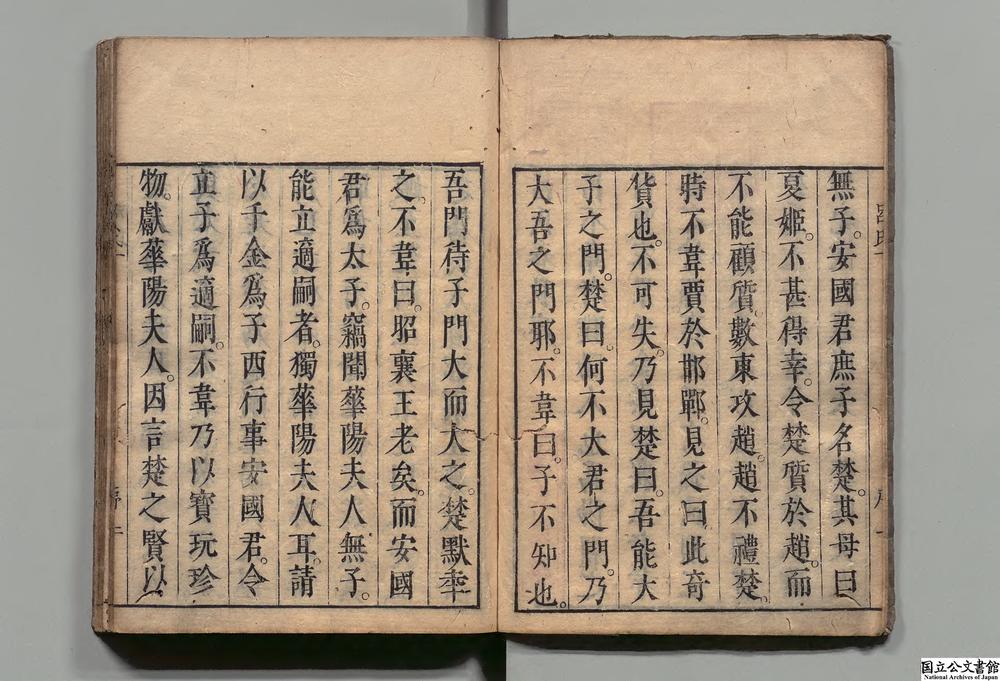 無子。安國君庶子名楚。其母曰
夏姬。不甚得幸。令楚質於趙。而
不能顧質。數東攻趙。趙不禮楚。
時不韋賈於邯鄲。見之曰此奇
貨也。不可失。乃見楚曰。吾能大
子之門。楚曰。何不大君之門。乃
大吾之門耶。不韋曰。子不知也。
吾門待子門大而大之。楚默幸
之。不韋曰。昭襄王老矣。而安國
君爲太子。竊聞華陽夫人無子。
能立適嗣者。獨華陽夫人耳。請
以千金爲子西行事安國君。令
立子爲適嗣。不韋乃以寶玩珍
物。獻華陽夫人。因言楚之賢。以
国立公文書館
National Archives of Japan